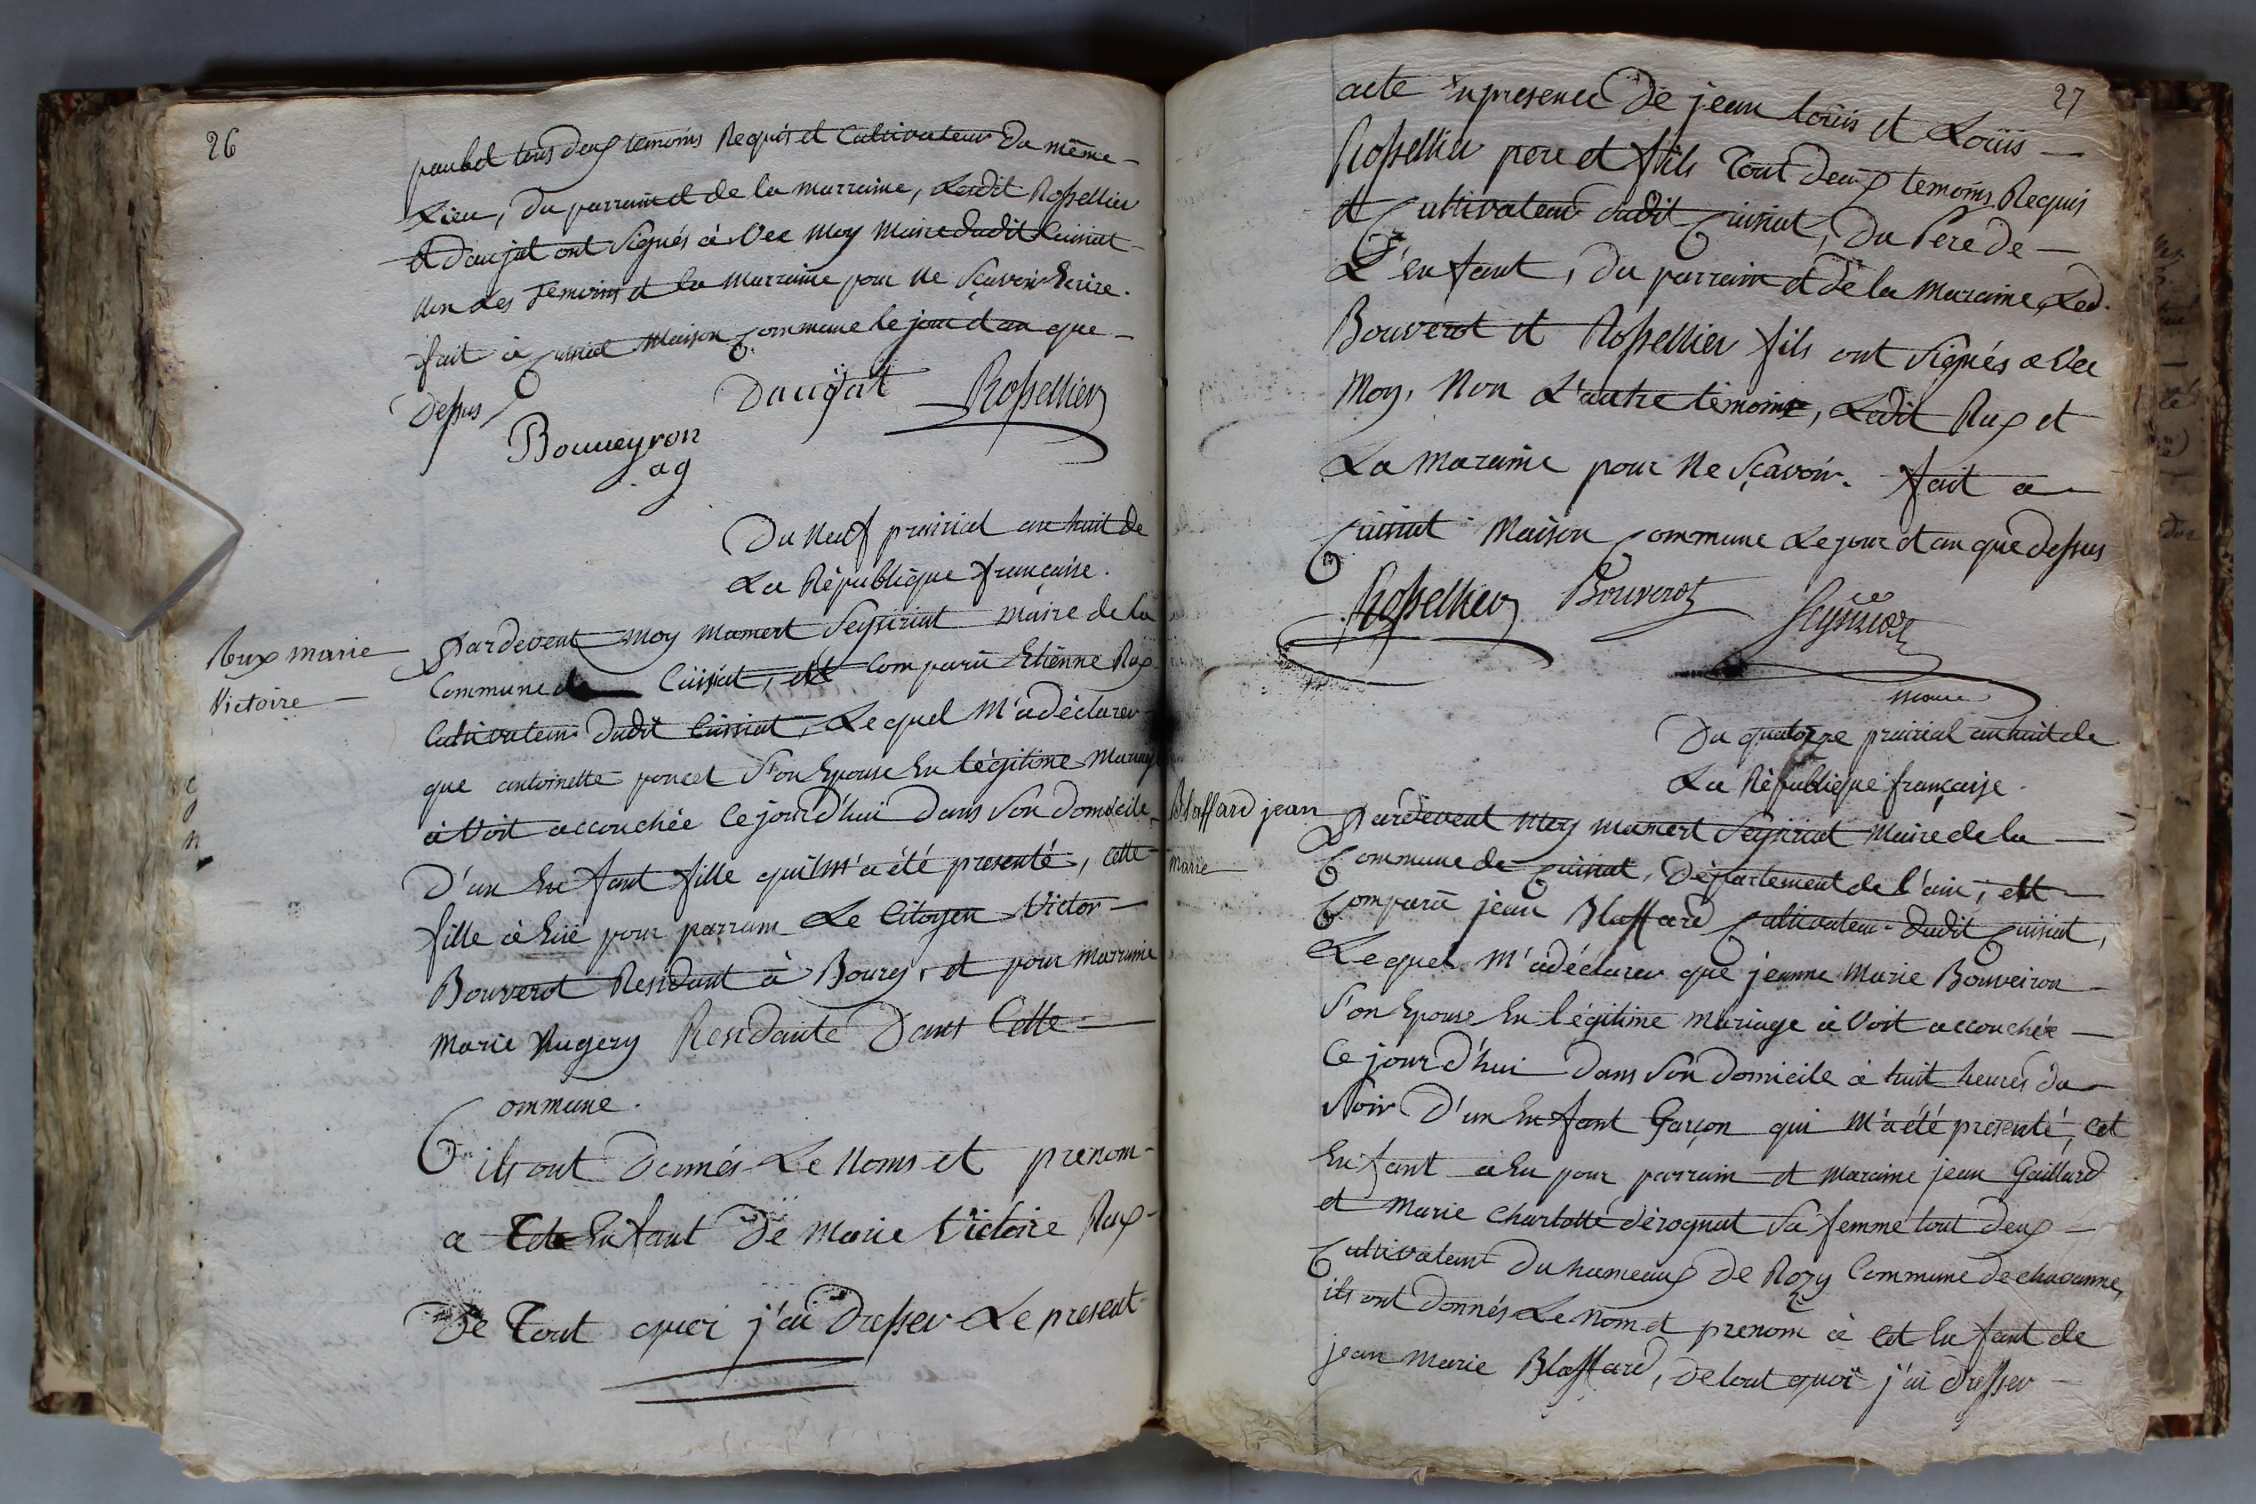 26
poncet tous deux temoins Requis et Cultivateur du même
Lieu, du parrain et de la marraine, Ledit Rossellier
et Daujat ont signés à Vec Moy Maire dudit Cuisiat
Non Les Temoins et la Marraine pour Ne sçavoir Ecrire.
fait à Cuisiat Maison Commune le jour et an que
Dessus
Daujat Rossellier
Bouveyron
ag
Du Neuf prairial an huit de
La République française.
Rux marie
Victoire
Pardevent Moy Mamert Seysiriat Maire de la
Commune de Cuisiat, est Comparû Etienne Rux
Cultivateur dudit Cuisiat, Lequel M'a déclarer
que antoinette poncet S'on Epouse En légitime Mariage
à Voit accouchée Ce jour d'hui dans Son domicile
D'un En fant fille qui m'a été presenté, cette
fille à Eüe pour parrain Le Citoyen Victor
Bouverot Residant à Bourg, et pour Marraine
Marie Nugery Residante Dans Cette
Commune.
ils ont Donnés Le Noms et prenom
a Cet En fant De Marie Victoire Rux
De Tout quoi j'ai Dresser Le present
27
acte En presence De jean louis et Loüis
Rossellier pere et fils Tout deux temoins Requis
et Cultivateur dudit Cuisiat, Du Pere de
L'en fant, du parrain et de la Maraine, Led.
Bouverot et Rossellier fils ont Signés a Vec
Moy, Non L'autre témoins, Ledit Rux et
La Maraine pour Ne Sçavoir. fait a
Cuisiat Maison Commune Le jour et an que dessus
Rossellier Bouverot Seysiriat
Maire
Du quatorze prairial an huit de
La République française.
Blaffard jean
Marie
Pardevent Moy Mamert Seysiriat Maire de la
Commune de Cuisiat, Département de l'ain, est
Comparû jean Blaffard Cultivateur dudit Cuisiat,
Lequel M'a déclarer que jeanne Marie Bouveiron
S'on Epouse En légitime Mariage à Voit accouchée
Ce jour d'hui dans Son domicile à huit heures du
Soir D'un En fant Garçon qui M'a été presenté, Cet
En fant à Eu pour parrain et Maraine jean Gaillard
et Marie Charlotte dérognat Sa femme tout deux
Cultivateur du hameaux de Rozy Commune de chavanne,
ils ont donnés Le Nom et prenom à Cet En fant de
jean Marie Blaffard, de tout quoi j'ai Dresser